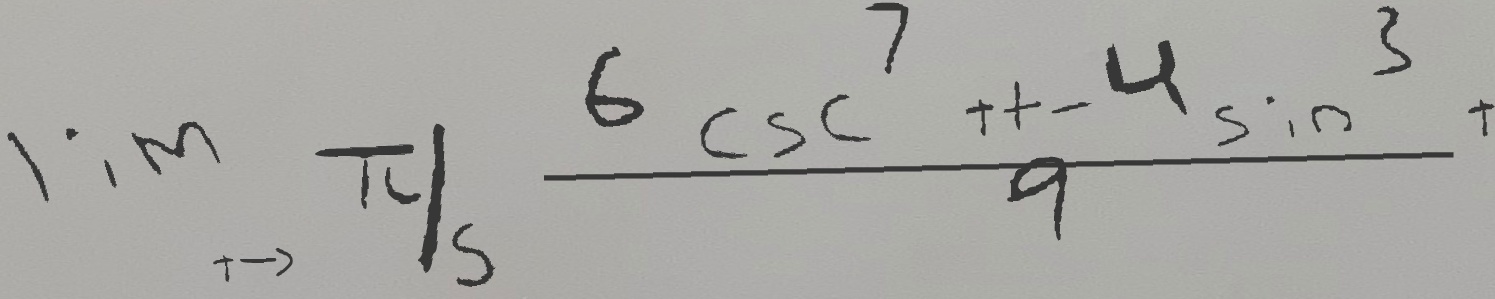 lim t→π/5 (6 csc⁷ t + -4 sin³ t)/9